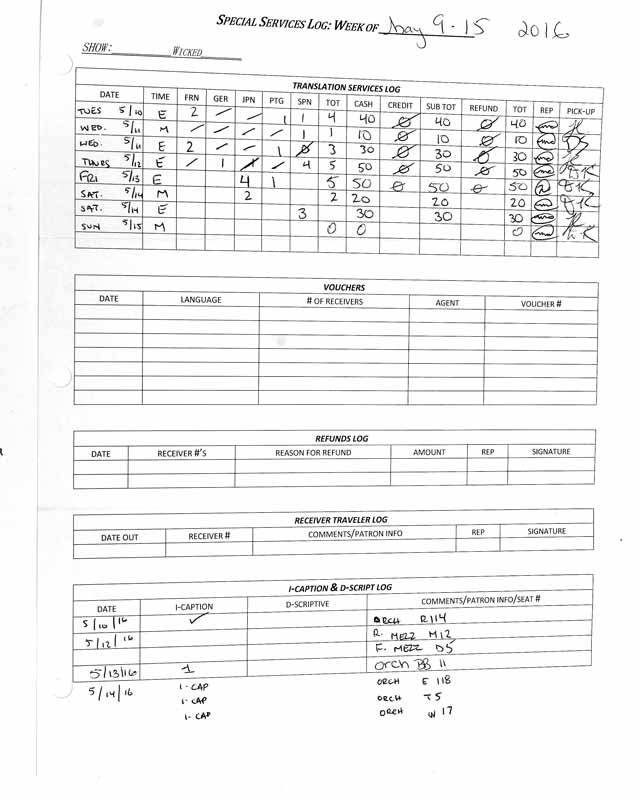 SPECIAL SERVICES LOG: WEEK OF May 9 - 15 2016
SHOW: WICKED
TRANSLATION SERVICES LOG
DATE TIME FRN GER JPN PTG SPN TOT CASH CREDIT SUB TOT REFUND TOT REP PICK-UP
TUES 5/10 E 2 / / 1 1 4 40 Ø 40 Ø 40
WED. 5/11 M / / / / 1 1 10 Ø 10 Ø 10
WED. 5/11 E 2 / / 1 Ø 3 30 Ø 30 Ø 30
THURS 5/12 E / 1 / / 4 5 50 Ø 50 Ø 50
FRI 5/13 E 4 1 5 50 Ø 50 Ø 50
SAT. 5/14 M 2 2 20 20 20
SAT. 5/14 E 3 30 30 30
SUN 5/15 M 0 0 0
VOUCHERS
DATE LANGUAGE # OF RECEIVERS AGENT VOUCHER #
REFUNDS LOG
DATE RECEIVER #'S REASON FOR REFUND AMOUNT REP SIGNATURE
RECEIVER TRAVELER LOG
DATE OUT RECEIVER # COMMENTS/PATRON INFO REP SIGNATURE
I-CAPTION & D-SCRIPT LOG
DATE I-CAPTION D-SCRIPTIVE COMMENTS/PATRON INFO/SEAT #
5/10/16 ✓ ORCH R114
5/12/16 R. MEZZ M12
F. MEZZ D5
5/13/16 1 Orch BB 11
5/14/16 I-CAP ORCH E 118
I-CAP ORCH T5
I-CAP ORCH W 17